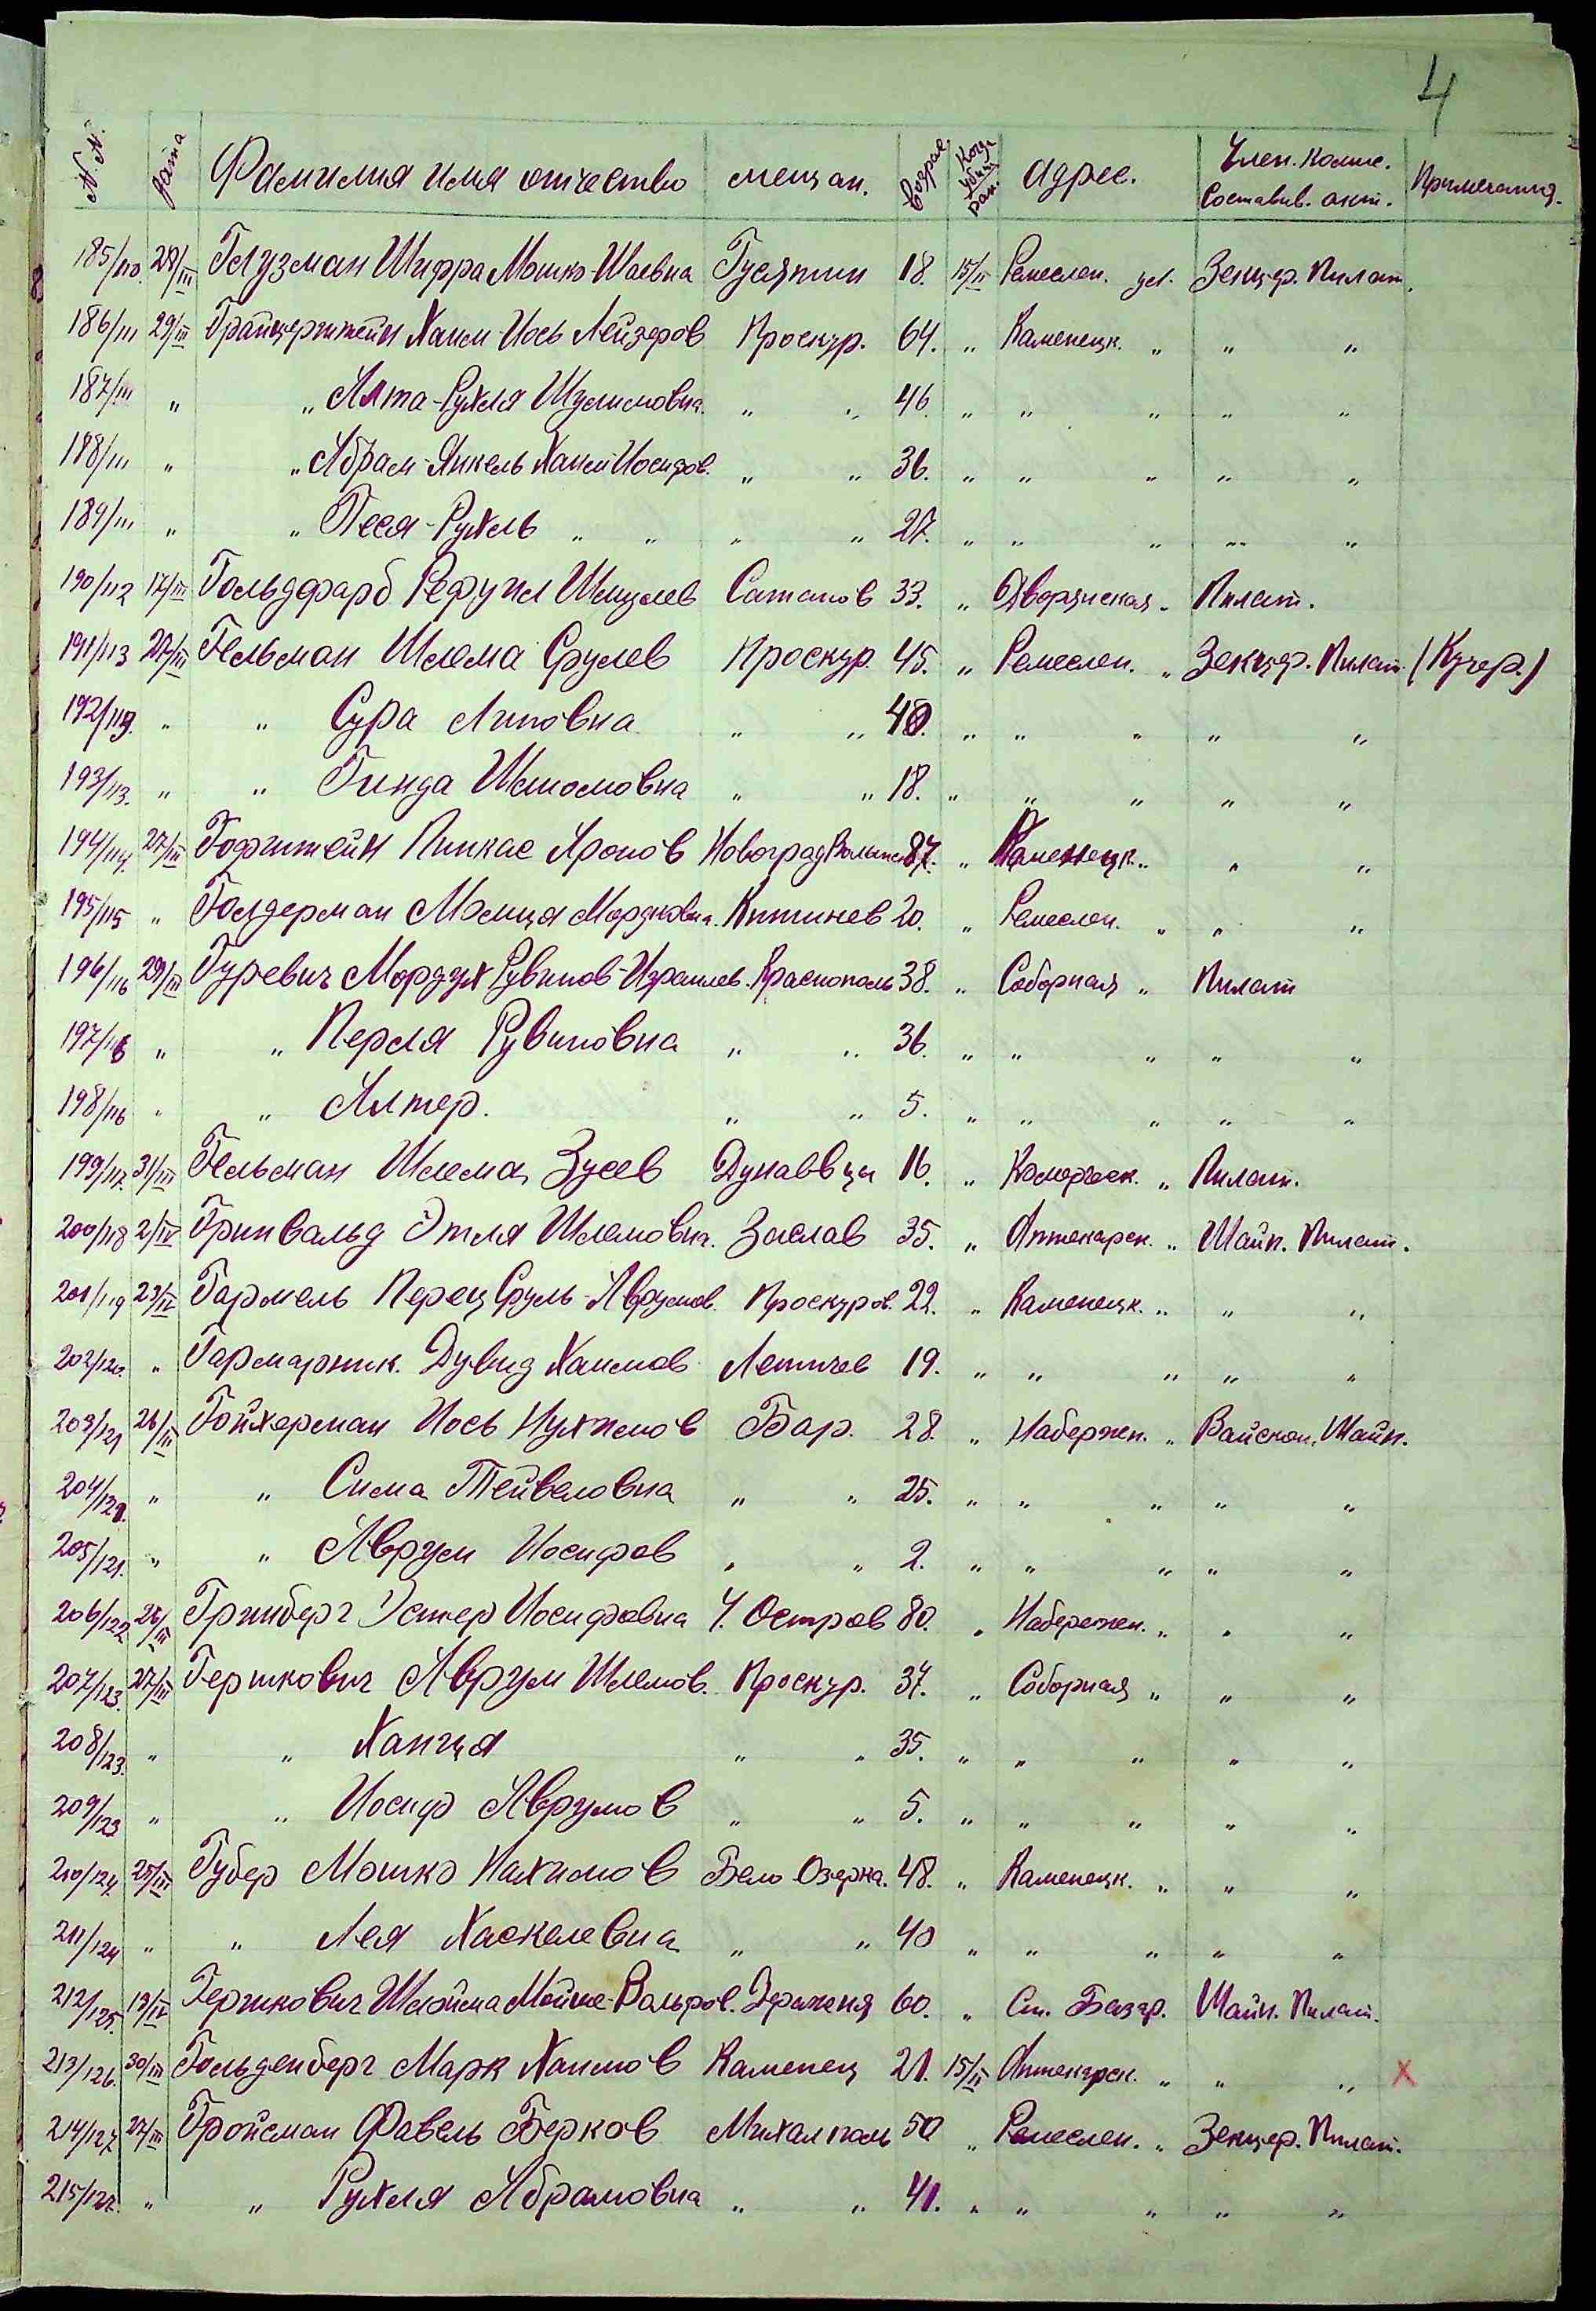 4
№№ дата Фамилия имя отчество мещан. возрас. Когда убит ран. адрес. Член. комис. Составив. акт. Примечания.
185/110. 27/III Глузман Шифра Мошко-Шаевна Гусятин 18. 15/II Ремеслен. ул. Зенцер. Пилат.
186/111 29/III Грайцерштейн Хаим-Иось Лейзеров Проскур. 64. „ Каменецк. „ „ „
187/111 „ „ Алта-Рухля Шулимовна. „ „ 46. „ „ „ „ „
188/111 „ „ Абрам-Янкель Хаим-Иосифов. „ „ 36. „ „ „ „ „
189/111 „ „ Песя-Рухль „ „ „ „ 27. „ „ „ „ „
190/112 17/III Гольдфарб Рефуил Шмулев Сатанов 33. „ Дворянская „ Пилат.
191/113 27/III Гельман Шлема Срулев Проскур. 45. „ Ремеслен. „ Зекцер. Пилат. (Кучер.)
192/113. „ „ Сура Липовна „ „ 40. „ „ „ „ „
193/113. „ „ Гинда Шломовна „ „ 18. „ „ „ „ „
194/114. 27/III Гофштейн Пинкас Аронов НовоградВолынс 87. „ Каменецк. „ „ „
195/115 „ Голдерман Молця Мордковна. Кишинев 20. „ Ремеслен. „ „ „
196/116 29/III Гуревич Мордух Рувинов-Израилев. Краснополь 38. „ Соборная „ Пилат
197/116 „ „ Перля Рувиновна „ „ 36. „ „ „ „ „
198/116 „ „ Алтер. „ „ 5. „ „ „ „ „
199/117. 31/III Гельман Шлема Зусев Дунаевцы 16. „ „ Пилат.
200/118 2/IV Гринвальд Этля Шлемовна. Заслав 35. „ Аптекарск. „ Шайн. Пилат.
201/119 23/IV Гармель Перец Сруль-Аврумов. Проскуров. 22. „ Каменецк. „ „ „
202/120. „ Гармарник. Дувид Хаимов Летичев 19. „ „ „ „ „
203/121 26/III Гойхерман Иось Нухимов Бар. 28. „ Набережн. „ Вайсман. Шайн.
204/121. „ „ Сима Тейвеловна „ „ 25. „ „ „ „ „
205/121. „ „ Аврум Иосифов „ „ 2. „ „ „ „ „
206/122 26/III Гринберг Эстер Иосифовна Ч. Остров 80. „ Набережн. „ „ „
207/123. 27/III Гершкович Аврум Шлемов. Проскур. 37. „ Соборная „ „ „
208/123. „ „ Ханця „ „ 35. „ „ „ „ „
209/123 „ „ Иосиф Аврумов „ „ 5. „ „ „ „ „
210/124 25/III Губер Мошко Нахимов Бело Озерка. 48. „ Каменецк. „ „ „
211/124 „ „ Лея Хаскелевна „ „ 40 „ „ „ „ „
212/125. 13/IV Гершкович Шлойма Мойше-Вольфов. Деражня 60. „ Ст. Базар. Шайн. Пилат.
213/126. 30/III Гольденберг Марк Хаимов Каменец 21. 15/II Аптекарск. „ „ „ X
214/127 27/III Гройсман Фавель Берков Михалполь 50 „ Ремеслен. „ Зенцер. Пилат.
215/127. „ „ Рухля Абрамовна „ „ 41. „ „ „ „ „